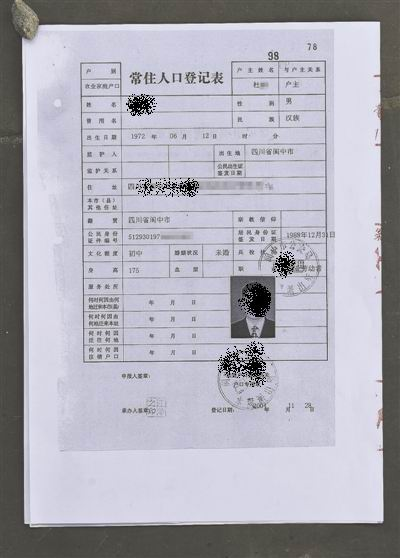 78
98
常住人口登记表
户 别
农业家庭户口
户主姓名 杜
与户主关系 户主
姓 名
性 别 男
曾用名
民 族 汉族
出生日期 1972 年 06 月 12 日 时 分
监护人
出生地 四川省阆中市
监护关系
公民出生证签发日期
住 址 四
本市（县）其他住址
籍 贯 四川省阆中市
宗教信仰
公民身份证件编号 512930197
居民身份证签发日期 1989年12月31日
文化程度 初中
婚姻状况 未婚
兵役
身 高 175
血 型
职
劳动者
服务处所
何时何因由何地迁来本市(县) 年 月 日
何时何因由何地迁来本址 年 月 日
何时何因迁往何地 年 月 日
何时何因注销户口 年 月 日
申报人签章：
承办人签章：
登记日期： 2004 年 11 月 28 日